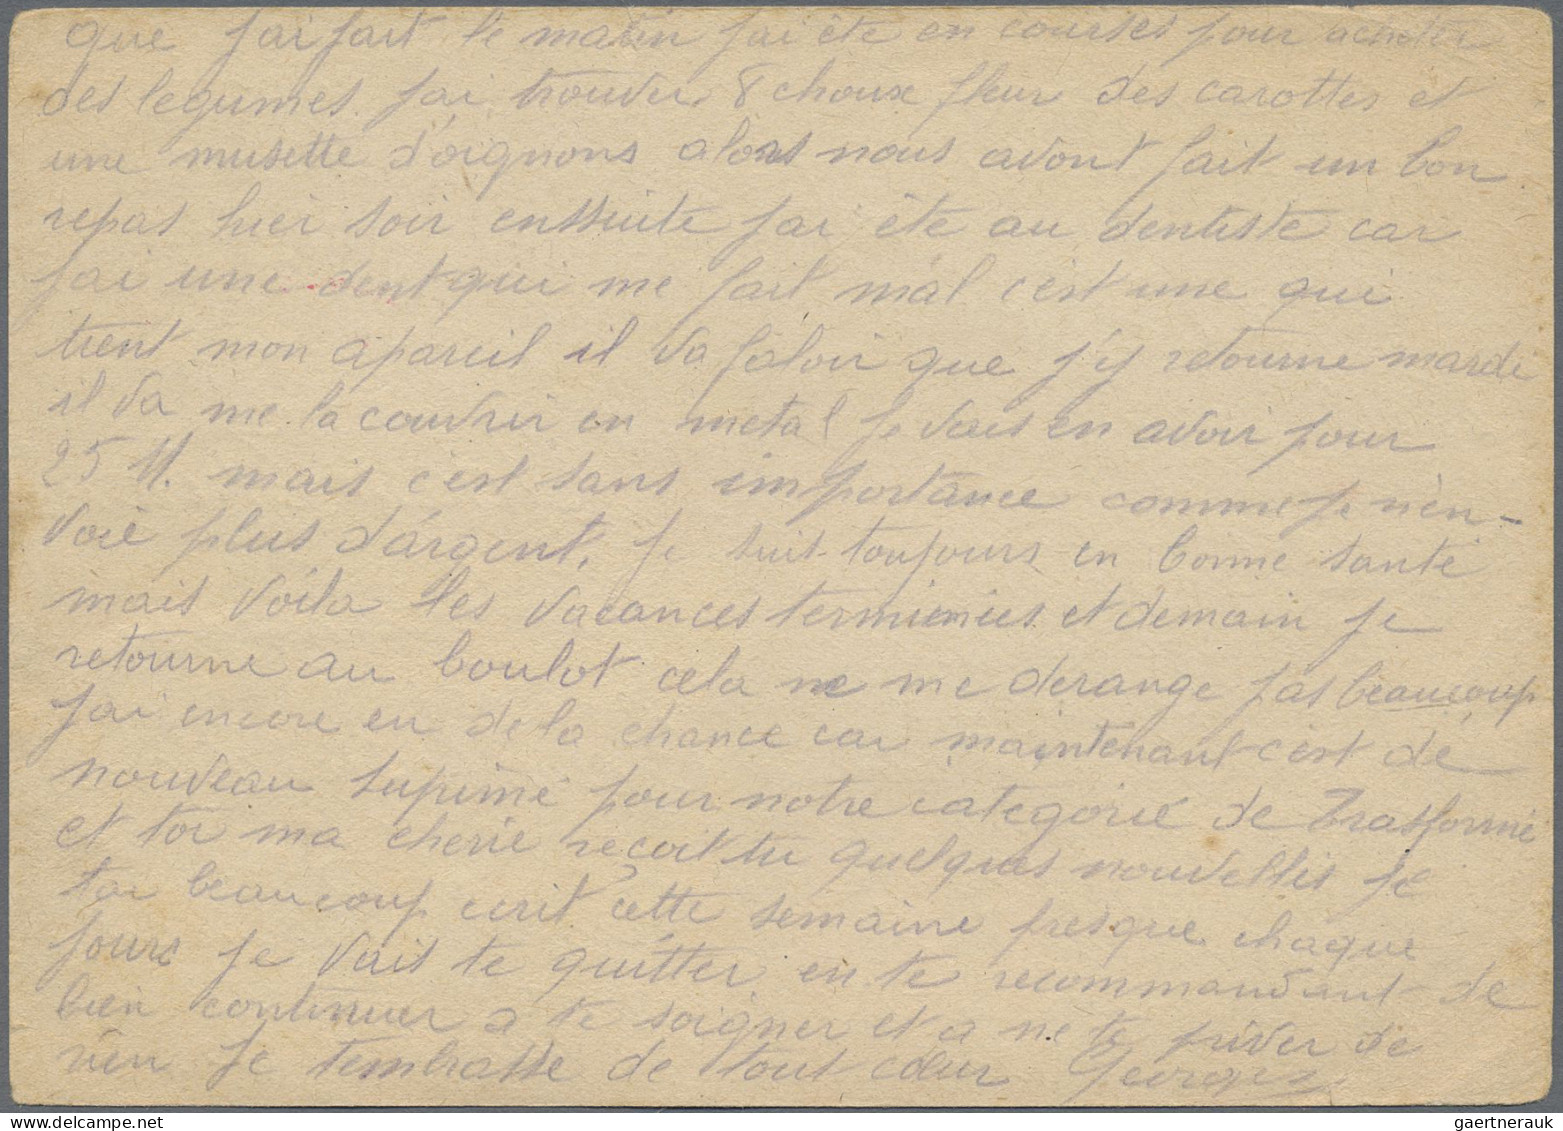 que jai fait le matin jai éte en courses pour acheter
des legumes jai trouver 8 choux fleur des carottes et
une musette d'oignons alors nous avont fait un bon
repas hier soir enssuite jai éte au dentiste car
jai une dent qui me fait mal c'est une qui
tient mon apareil il va faloir que j'y retourne mardi
il va me la couvrir en metal je vais en avoir pour
25 M. mais c'est sans importance comme je n'en-
voie plus d'argent. je suis toujours en bonne santé
mais voila les vacances terminies et demain je
retourne au boulot cela ne me derange pas beaucoup
jai encore eu de la chance car maintenant c'est de
nouveau suprimé pour notre categorie de Trasformé
et toi ma cherie reçoit tu quelques nouvelles je
tai beaucoup ecrit cette semaine presque chaque
jours je vais te quitter en te recommandant de
bien continuer a te soigner et a ne te priver de
rien je tembrasse de tout cœur Georges
gaertnerauk